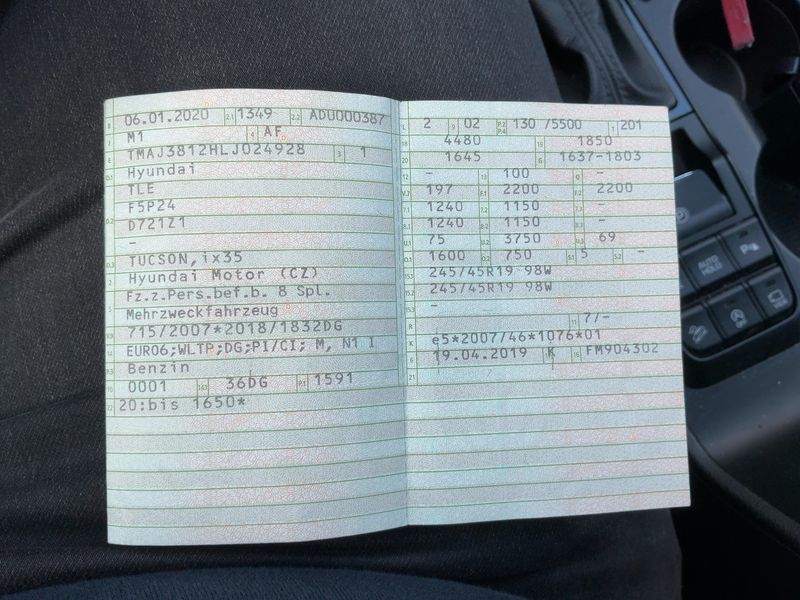 B 06.01.2020 2.1 1349 2.2 ADU000387
J M1 4 AF
E TMAJ3812HLJ024928 3 1
D.1 Hyundai
TLE
D.2 F5P24
D721Z1
-
D.3 TUCSON,ix35
2 Hyundai Motor (CZ)
5 Fz.z.Pers.bef.b. 8 Spl.
Mehrzweckfahrzeug
V.9 715/2007*2018/1832DG
14 EURO6;WLTP;DG;PI/CI; M, N1 I
P.3 Benzin
10 0001 14.1 36DG P.1 1591
22 20:bis 1650*
L 2 9 02 P.2 P.4 130 /5500 T 201
18 4480 19 1850
20 1645 G 1637-1803
12 - 13 100 Q -
V.7 197 F.1 2200 F.2 2200
7.1 1240 7.2 1150 7.3 -
8.1 1240 8.2 1150 8.3 -
U.1 75 U.2 3750 U.3 69
O.1 1600 O.2 750 S.1 5 S.2 -
15.1 245/45R19 98W
15.2 245/45R19 98W
15.3 -
R 11 7/-
K e5*2007/46*1076*01
6 19.04.2019 17 K 16 FM904302
21
AUTO HOLD